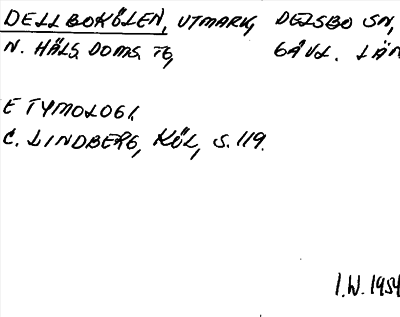 DELLBOKÖLEN, UTMARK, DELSBO SN,
N. HÄLS. DOMS. TG, GÄVL. LÄN
ETYMOLOGI,
C. LINDBERG, KÖL, S. 119.
I.W. 1954